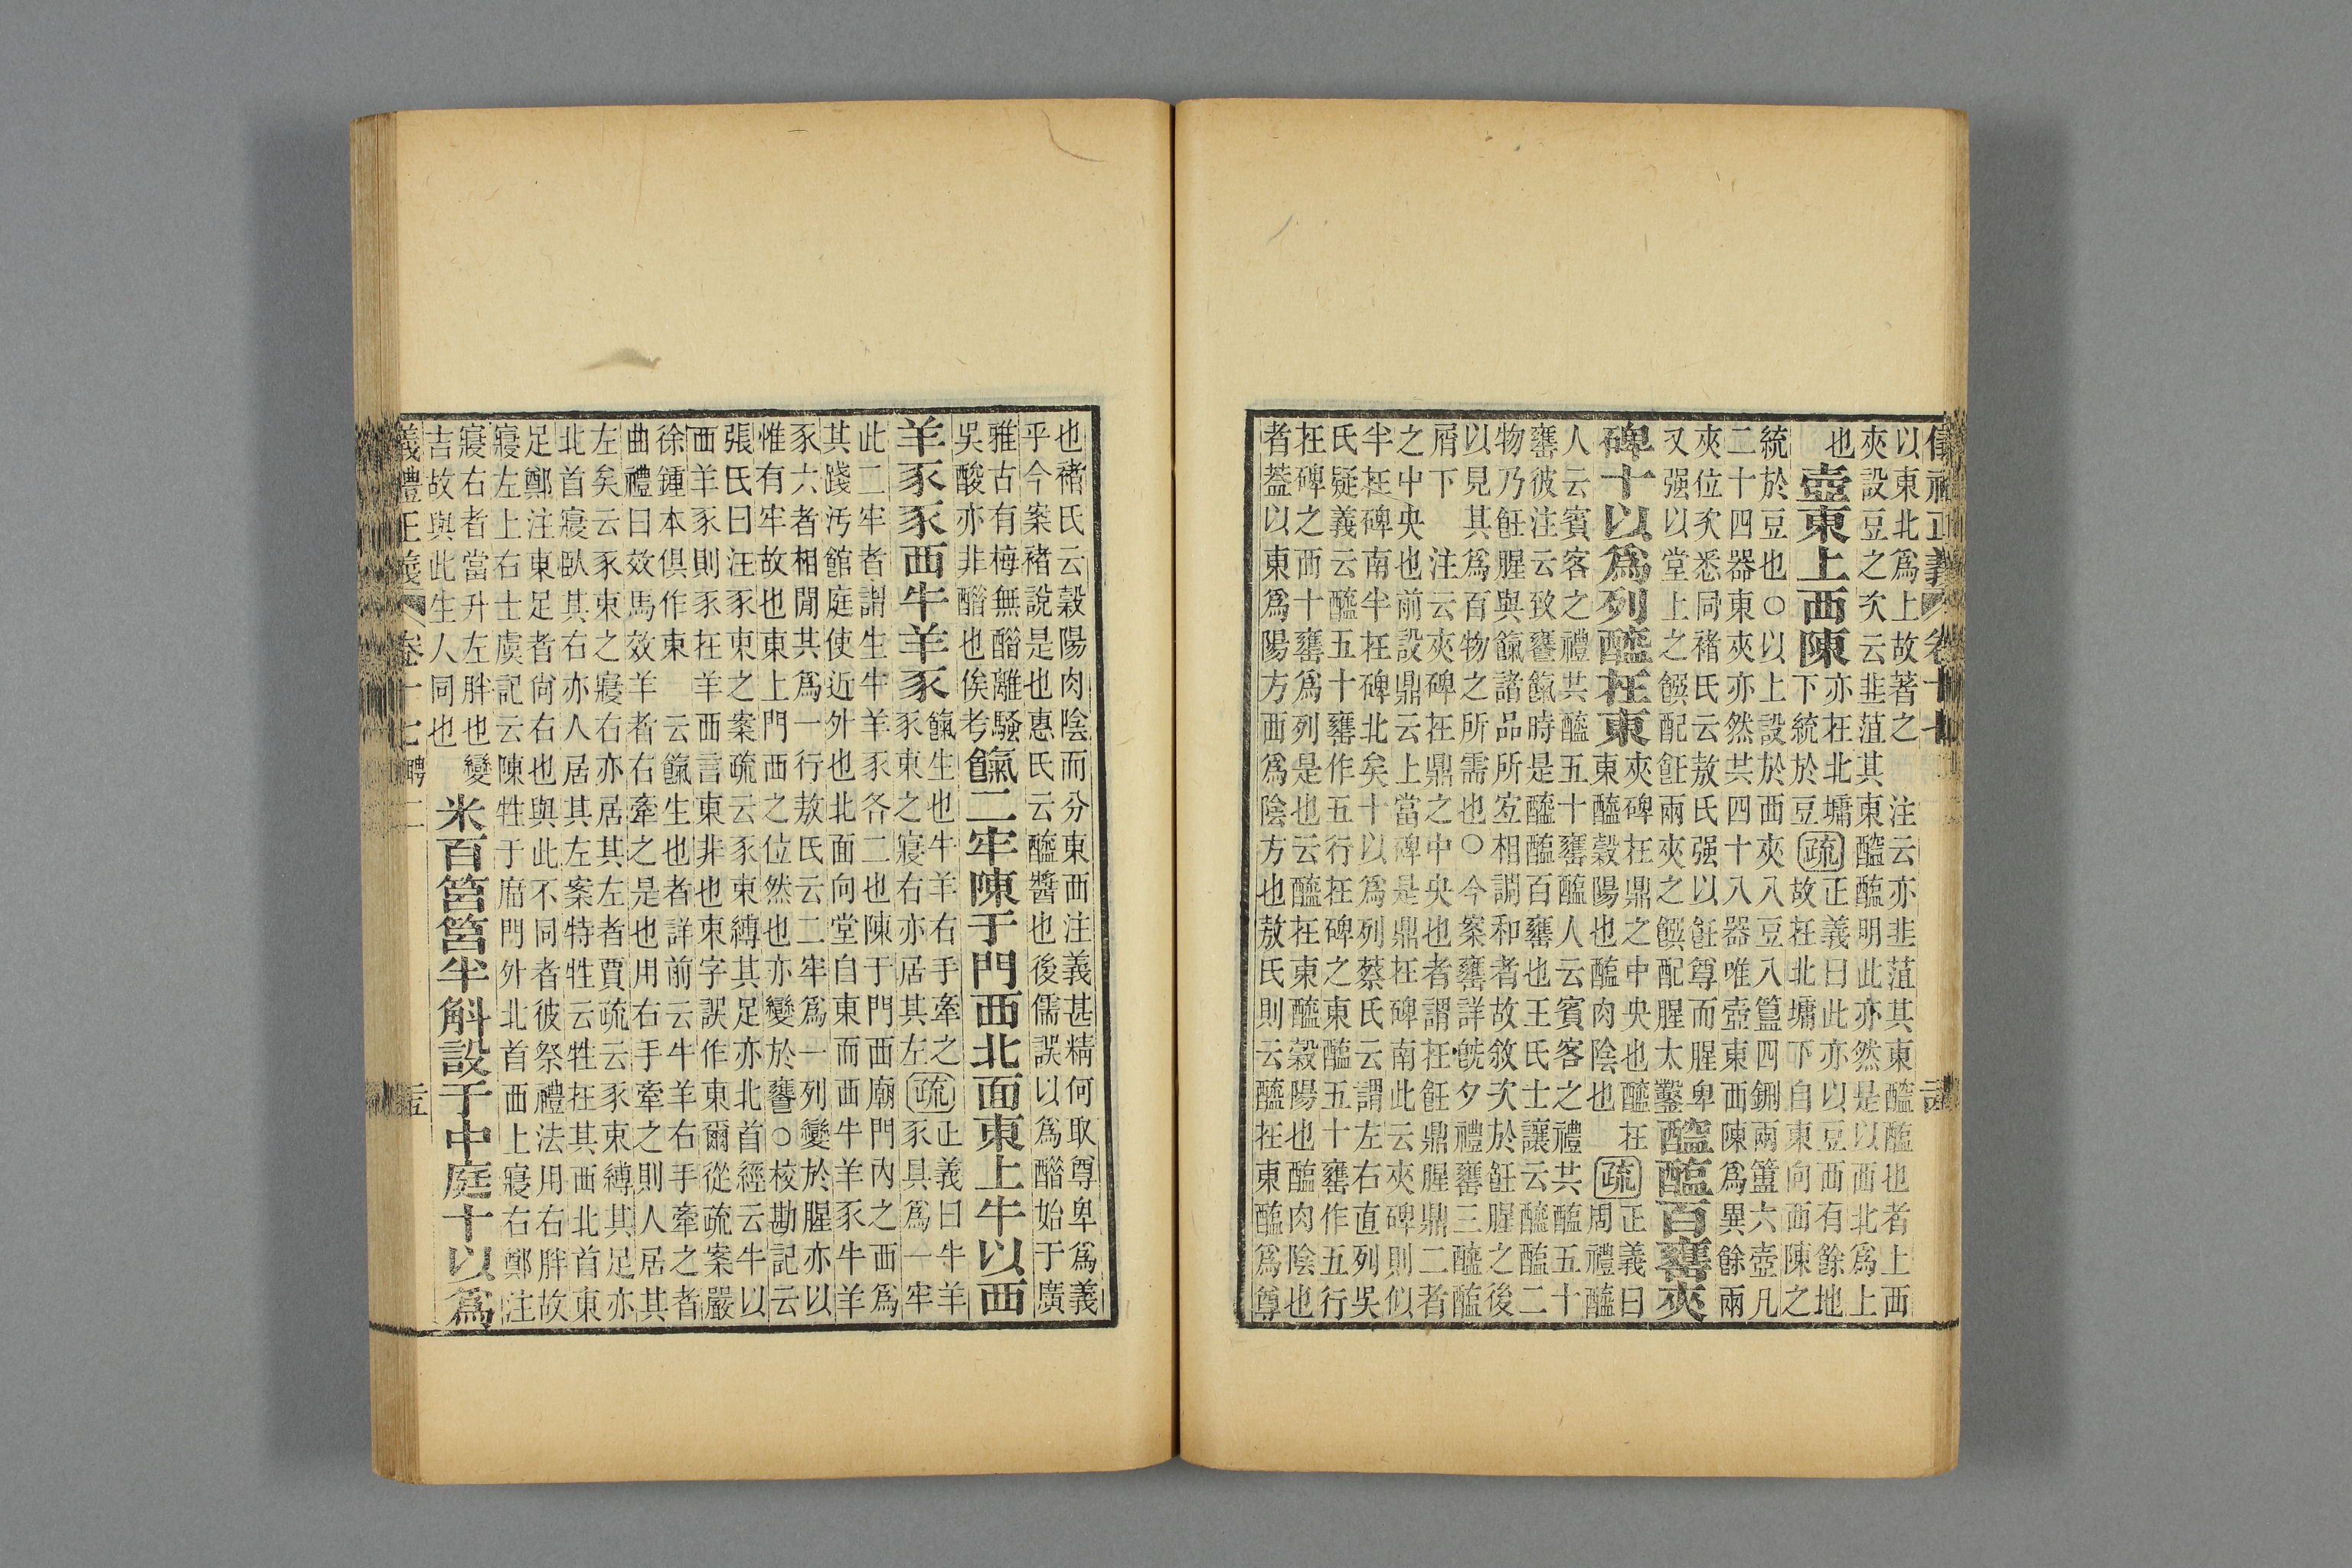 以東北爲上故著之　注云亦韭菹其東醓醢也者上西
夾設豆之次云韭菹其東醓醢明此亦然是以西北爲上
也
壺東上西陳
亦在北墉
下統於豆
疏
正義曰此亦以豆西有餘地
故在北墉下自東向西陳之
統於豆也○以上設於西夾八豆八簋四鉶兩簠六壺凡
二十四器東夾亦然共四十八器唯壺東西陳爲異餘兩
夾位次悉同褚氏云敖氏强以飪尊而腥卑
又强以堂上之饌配飪兩夾之饌配腥太鑿
醯醢百罋夾
碑十以爲列醯在東
夾碑在鼎之中央也醯在
東醯穀陽也醢肉陰也
疏
正義曰
周禮醢
人云賓客之禮共醢五十罋醯人云賓客之禮共醯五十
罋彼注云致饔餼時是醯醢百罋也王氏士讓云醯醢二
物乃飪腥與餼諸品所宜相調和者故敘次於飪腥之後
以見其爲百物之所需也○今案罋詳旣夕禮罋三醯醢
屑下　注云夾碑在鼎之中央也者謂在飪鼎腥鼎二者
之中央也前設鼎云上當碑是鼎在碑南此云夾碑則似
半在碑南半在碑北矣十以爲列蔡氏云謂左右直列吳
氏疑義云醯五十罋作五行在碑之東醢五十罋作五行
在碑之西十罋爲列是也云醯在東醯穀陽也醢肉陰也
者蓋以東爲陽方西爲陰方也敖氏則云醯在東醯爲尊
也褚氏云穀陽肉陰而分東西注義甚精何取尊卑爲義
乎今案褚說是也惠氏云醯醬也後儒誤以爲醋始于廣
雅古有梅無醋離騷
吳酸亦非醋也俟考
餼二牢陳于門西北面東上牛以西
羊豕豕西牛羊豕
餼生也牛羊右手牽之
豕東之寢右亦居其左
疏
正義曰牛羊
豕具爲一牢
此二牢者謂生牛羊豕各二也陳于門西廟門內之西爲
其踐汚館庭使近外也北面向堂自東而西牛羊豕牛羊
豕六者相閒其爲一行敖氏云二牢爲一列變於腥亦以
惟有牢故也東上門西之位然也亦變於饔○校勘記云
張氏曰注豕東之案疏云豕束縛其足亦北首經云牛以
西羊豕則豕在羊西言東非也束字誤作東爾從疏案嚴
徐鍾本俱作東　云餼生也者詳前云牛羊右手牽之者
曲禮曰效馬效羊者右牽之是也用右手牽之則人居其
左矣云豕東之寢右亦居其左者賈疏云豕束縛其足亦
北首寢臥其右亦人居其左案特牲云牲在其西北首東
足鄭注東足者尙右也與此不同者彼祭禮法用右胖故
寢左上右士虞記云陳牲于庿門外北首西上寢右鄭注
寢右者當升左胖也變
吉故與此生人同也
米百筥筥半斛設于中庭十以爲
義禮正義　卷十七　聘二